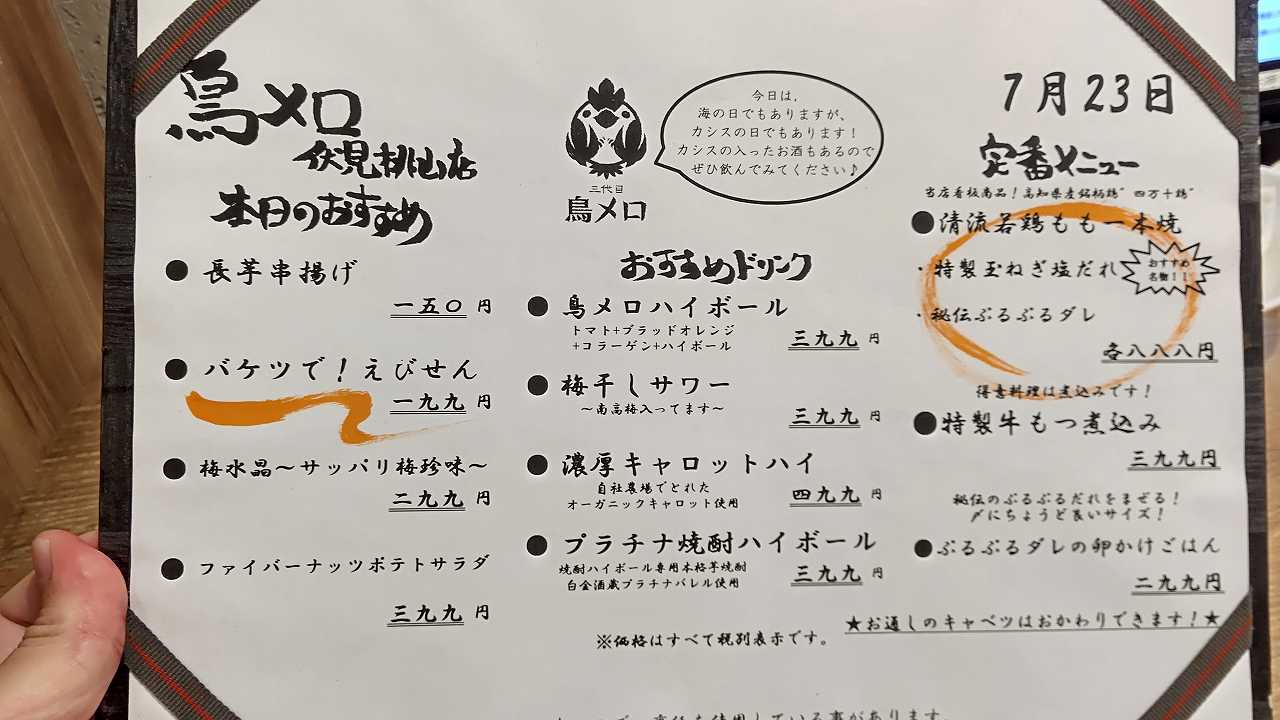 鳥メロ
伏見桃山店
本日のおすすめ
● 長芋串揚げ
一五〇 円
● バケツで！えびせん
一九九 円
● 梅水晶〜サッパリ梅珍味〜
二九九 円
● ファイバーナッツポテトサラダ
三九九 円
三代目
鳥メロ
今日は、
海の日でもありますが、
カシスの日でもあります！
カシスの入ったお酒もあるので
ぜひ飲んでみてください♪
おすすめドリンク
● 鳥メロハイボール
トマト+ブラッドオレンジ
+コラーゲン+ハイボール
三九九 円
● 梅干しサワー
〜南高梅入ってます〜
三九九 円
● 濃厚キャロットハイ
自社農場でとれた
オーガニックキャロット使用
四九九 円
● プラチナ焼酎ハイボール
焼酎ハイボール専用本格芋焼酎
白金酒蔵プラチナバレル使用
三九九 円
※価格はすべて税別表示です。
7月23日
定番メニュー
当店看板商品！高知県産銘柄鶏“四万十鶏”
● 清流若鶏もも一本焼
・特製玉ねぎ塩だれ
おすすめ
名物！！
・秘伝ぷるぷるダレ
各八八八円
得意料理は煮込みです！
● 特製牛もつ煮込み
三九九円
秘伝のぷるぷるだれをまぜる！
〆にちょうど良いサイズ！
● ぷるぷるダレの卵かけごはん
二九九円
★お通しのキャベツはおかわりできます！★
使用している事があります。